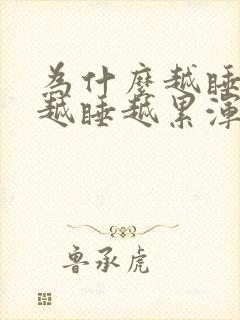 為什麼越睡
越睡越累渾
魯承虎